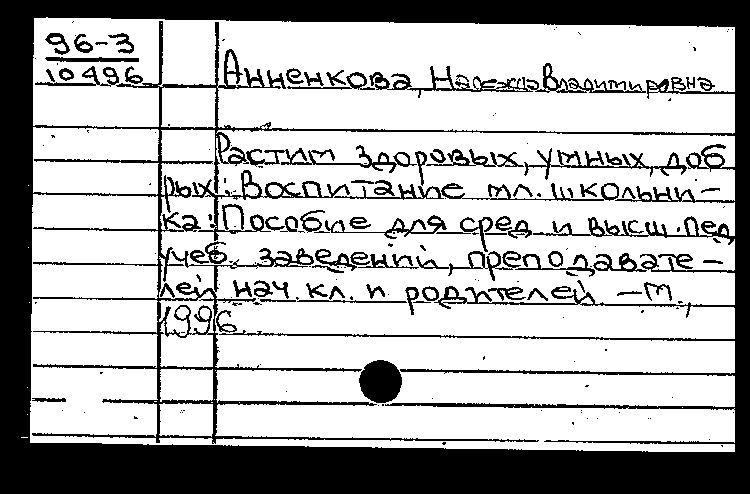 96-3
10496
Анненкова, Надежда Владимировна
Растим здоровых, умных, доб
рых: Воспитание мл. школьни-
ка: Пособие для сред. и высш. пед
учеб. заведений, преподавате-
лей нач. кл. и родителей. -М.,
1996.